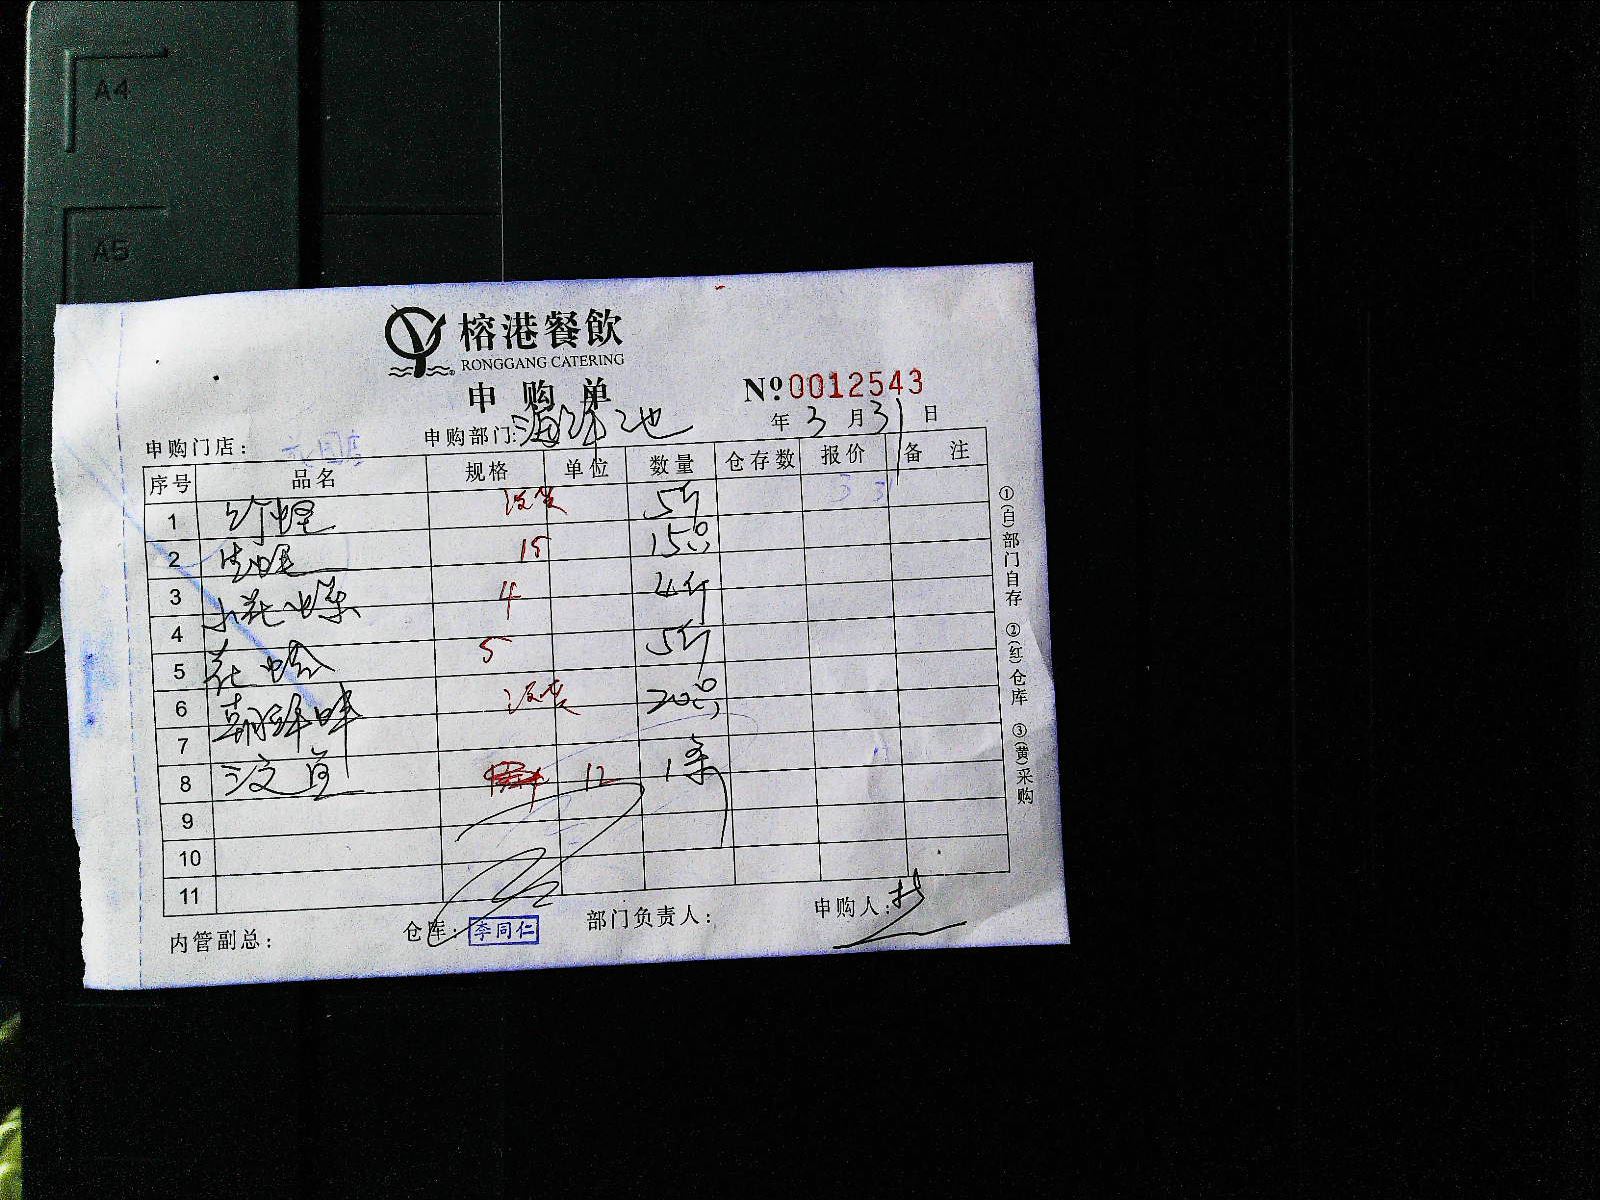 A4
A5
榕港餐飲
RONGGANG CATERING
申购单
Nº 0012543
年 3 月 31 日
申购门店：
申购部门：海鲜池
序号 品名 规格 单位 数量 仓存数 报价 备注
1 竹蛏 没货 5斤
2 生蚝 15 15只
3 小花螺 4 4斤
4
5 花蛤 5 5斤
6 没货 20只
7
8 12 1条
9
10
11
内管副总：
仓库： 李同仁
部门负责人：
申购人：
①(白)部门自存 ②(红)仓库 ③(黄)采购